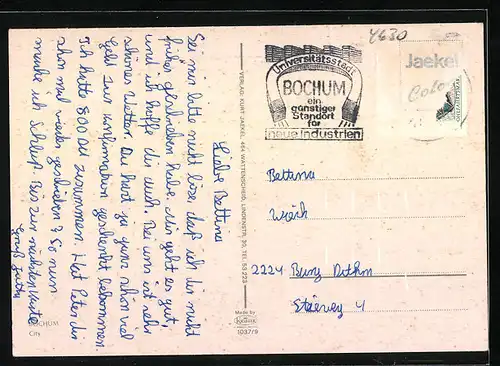 Liebe Bettina
Sei nun bitte nicht böse, daß ich dir nicht
früher geschrieben habe. Mir geht es gut,
und ich hoffe dir auch. Bei uns ist sehr
schönes Wetter. Du hast ja ganz schön viel
Geld zur Konfirmation geschenkt bekommen.
Ich hatte 800 DM zusammen. Hat Peter dir
schon mal wieder geschrieben? So nun
mache ich Schluß. Bis zur nächsten Karte
Gruß
BOCHUM
City
VERLAG: KURT JAEKEL, 464 WATTENSCHEID, LINDENSTR. 30, TEL. 53 223
Made by
KRÜGER
1037/9
Universitätsstadt
BOCHUM
ein
günstiger
Standort
für
neue Industrien
4630
Jaekel
Color
Bettina
2224 Burg Dithm
4